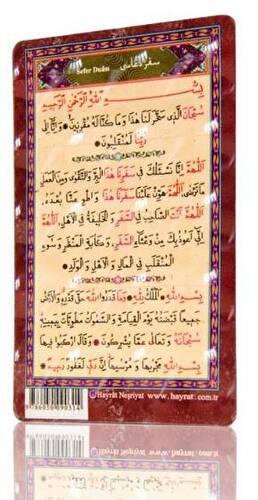 Sefer Duâsı سفر دعاسی
بِسْمِ اللّٰهِ الرَّحْمٰنِ الرَّحِيمِ
سُبْحَانَ الَّذِي سَخَّرَ لَنَا هٰذَا وَمَا كُنَّا لَهُ مُقْرِنِينَ ۞ وَإِنَّا إِلٰى
رَبِّنَا لَمُنْقَلِبُونَ ۞
اَللّٰهُمَّ إِنَّا نَسْئَلُكَ فِي سَفَرِنَا هٰذَا الْبِرَّ وَالتَّقْوٰى وَمِنَ الْعَمَلِ
مَا تَرْضٰى ۞ اَللّٰهُمَّ هَوِّنْ عَلَيْنَا سَفَرَنَا هٰذَا وَاطْوِ عَنَّا بُعْدَهُ ۞
اَللّٰهُمَّ أَنْتَ الصَّاحِبُ فِي السَّفَرِ وَ الْخَلِيفَةُ فِي الْأَهْلِ ۞ اَللّٰهُمَّ
إِنِّي أَعُوذُ بِكَ مِنْ وَعْثَاءِ السَّفَرِ وَ كَآبَةِ الْمَنْظَرِ وَ سُوءِ
الْمُنْقَلَبِ فِي الْمَالِ وَ الْأَهْلِ وَ الْوَلَدِ ۞
بِسْمِ اللّٰهِ الْمَلِكِ لِلّٰهِ ۞ وَمَا قَدَرُوا اللّٰهَ حَقَّ قَدْرِهِ وَالْأَرْضُ
جَمِيعًا قَبْضَتُهُ يَوْمَ الْقِيَامَةِ وَ السَّمٰوَاتُ مَطْوِيَّاتٌ بِيَمِينِهِ
سُبْحَانَهُ وَ تَعَالٰى عَمَّا يُشْرِكُونَ ۞ وَقَالَ ارْكَبُوا فِيهَا
بِسْمِ اللّٰهِ مَجْرٰيهَا وَ مُرْسٰيهَا إِنَّ رَبِّي لَغَفُورٌ رَحِيمٌ ۞
9786050090314
Hayrât Neşriyat www.hayrat.com.tr